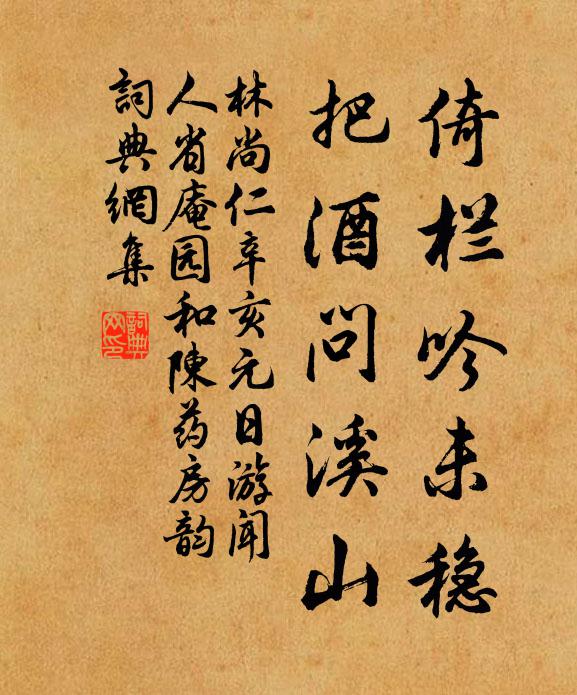 倚栏吟未稳
把酒问溪山
林尚仁辛亥元日游闻
人省庵园和陳药房韵
詞典網集
詞典网印